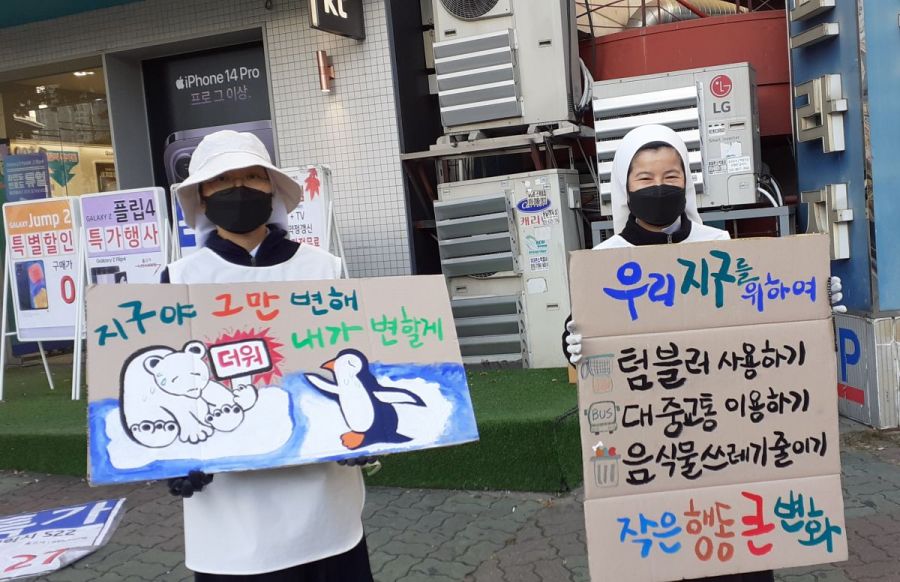 kt
iPhone 14 Pro
프로 그 이상.
LG
캐리어
GALAXY Jump 2
특별할인
구매가
0
GALAXY Z
플립4
특가행사
Galaxy Z Flip4
+TV
지구야 그만 변해
내가 변할게
더워
우리 지구를 위하여
텀블러 사용하기
BUS
대중교통 이용하기
음식물쓰레기줄이기
작은 행동 큰 변화
P
S22
27